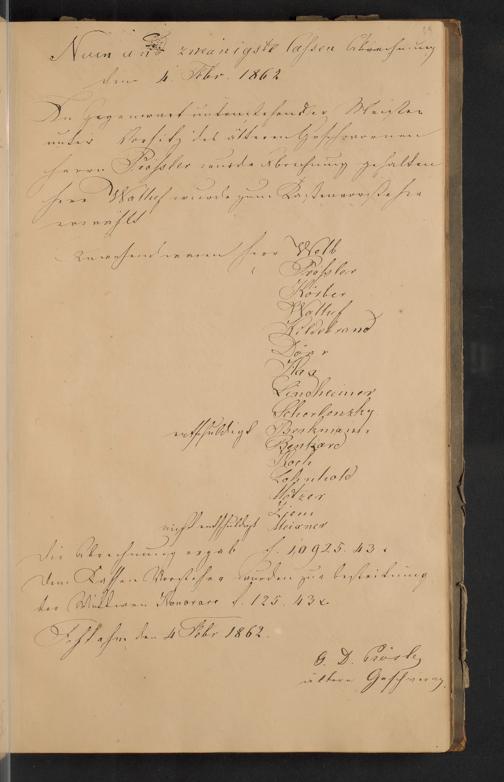 Neun und zwanzigste Cassen Abrechnung
dem 4 Febr. 1862
In Gegenwart untenstehender Meister
unter Vorsitz des ältern Geschwornen
Herrn Prößler wurde Abrechnung gehalten
Herr Walluf wurde zum Kastenvorsteher
erwählt
Anwesend waren Herr Wolb
Prößler
Körber
Walluf
Hildebrand
Dörr
Kax
Lindheimer
Scherbonzky
entschuldigt Berkmann
Benkard
Koch
Loßnhold
Mötzer
nicht entschuldigt Meixner
Die Abrechnung ergab f. 10925. 43 x
Dem Kassen Vorsteher wurden zur bestreitung
der Wittwen Honorare f. 125. 43 x
den 4 Febr 1862.
G. D. Prößler
ältern Geschworn.